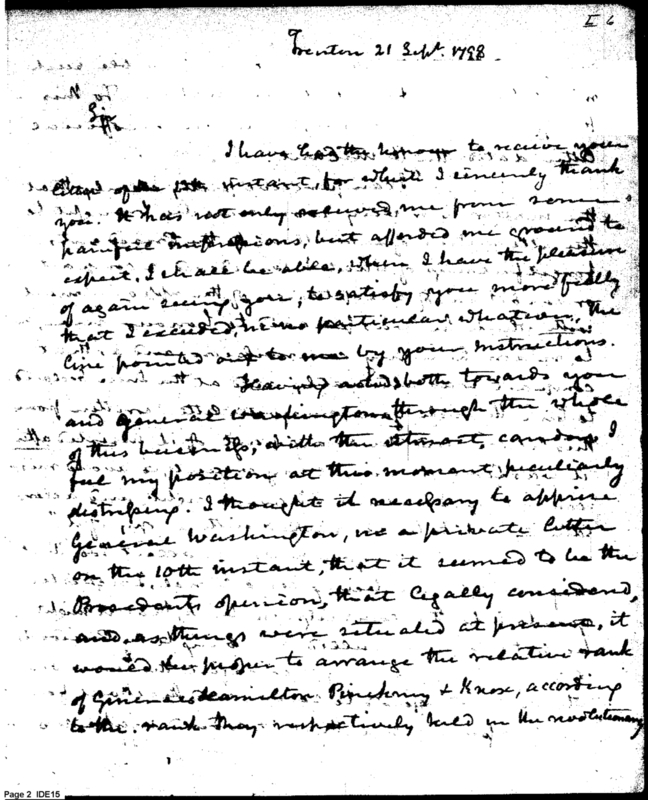 I 6
Trenton 21 Sept. 1798.
Sir
I have had the honour to receive your
letter of the 13th instant, for which I sincerely thank
you. It has not only relieved me from some
painful impressions, but afforded me ground to
expect, I shall be able, when I have the pleasure
of again seeing you, to satisfy you more fully
that I exceeded, in no particular whatever, the
line pointed out to me by your instructions.
Having acted both towards you
and general Washington through the whole
of this business, with the utmost candour I
feel my position at this moment peculiarly
distressing. I thought it necessary to apprise
General Washington, in a private letter
on the 10th instant, that it seemed to be the
Presidents opinion, that legally considered,
and as things were situated at present, it
would be proper to arrange the relative rank
of Generals Hamilton Pinckney & Knox, according
to the rank they respectively held in the revolutionary
Page 2 IDE15